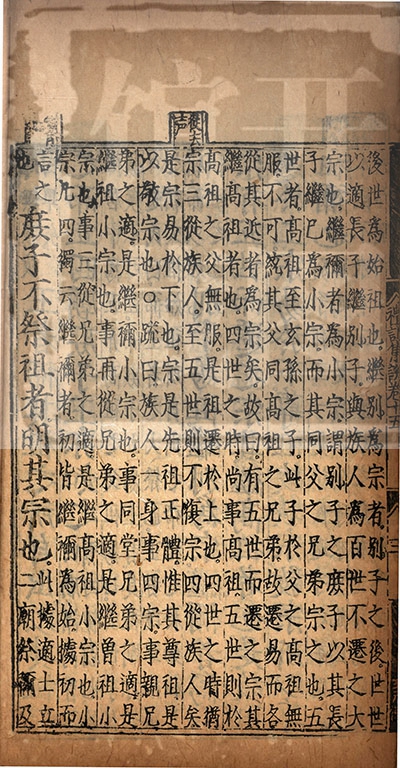 後世為始祖也。繼別為宗者。別子之後。世世
以適長子繼別子。與族人為百世不遷之大
宗也。繼禰者為小宗。謂別子之庶子以其長
子繼已為小宗。而其同父之兄弟宗之也。五
世者。高祖至玄孫之子。此子於父之高祖無
服。不可統其父同高祖之兄弟。故遷易而各
從其近者為宗矣。故曰有五世而遷之宗。其
繼髙祖者也。四世之時尚事高祖。五世則於
髙祖之父無服。是祖遷於上也。四世之時猶
宗三從族人。至五世則不復宗四從族人矣
是宗易於下也。宗是先祖正體。惟其尊祖。是
以敬宗也。○疏曰。族人一身事四宗。事親兄
弟之適。是繼禰小宗也。事同堂兄弟之適。是
繼祖小宗也。事再從兄弟之適。是繼曾祖小
宗也。事三從兄弟之適。是繼髙祖小宗也。小
宗凡四。獨云繼禰者。初皆繼禰為始。據初而
言之
也。
庶子不祭祖者明其宗也。
此據適士立
二廟祭禰及
從去声
禮記集說卷十五